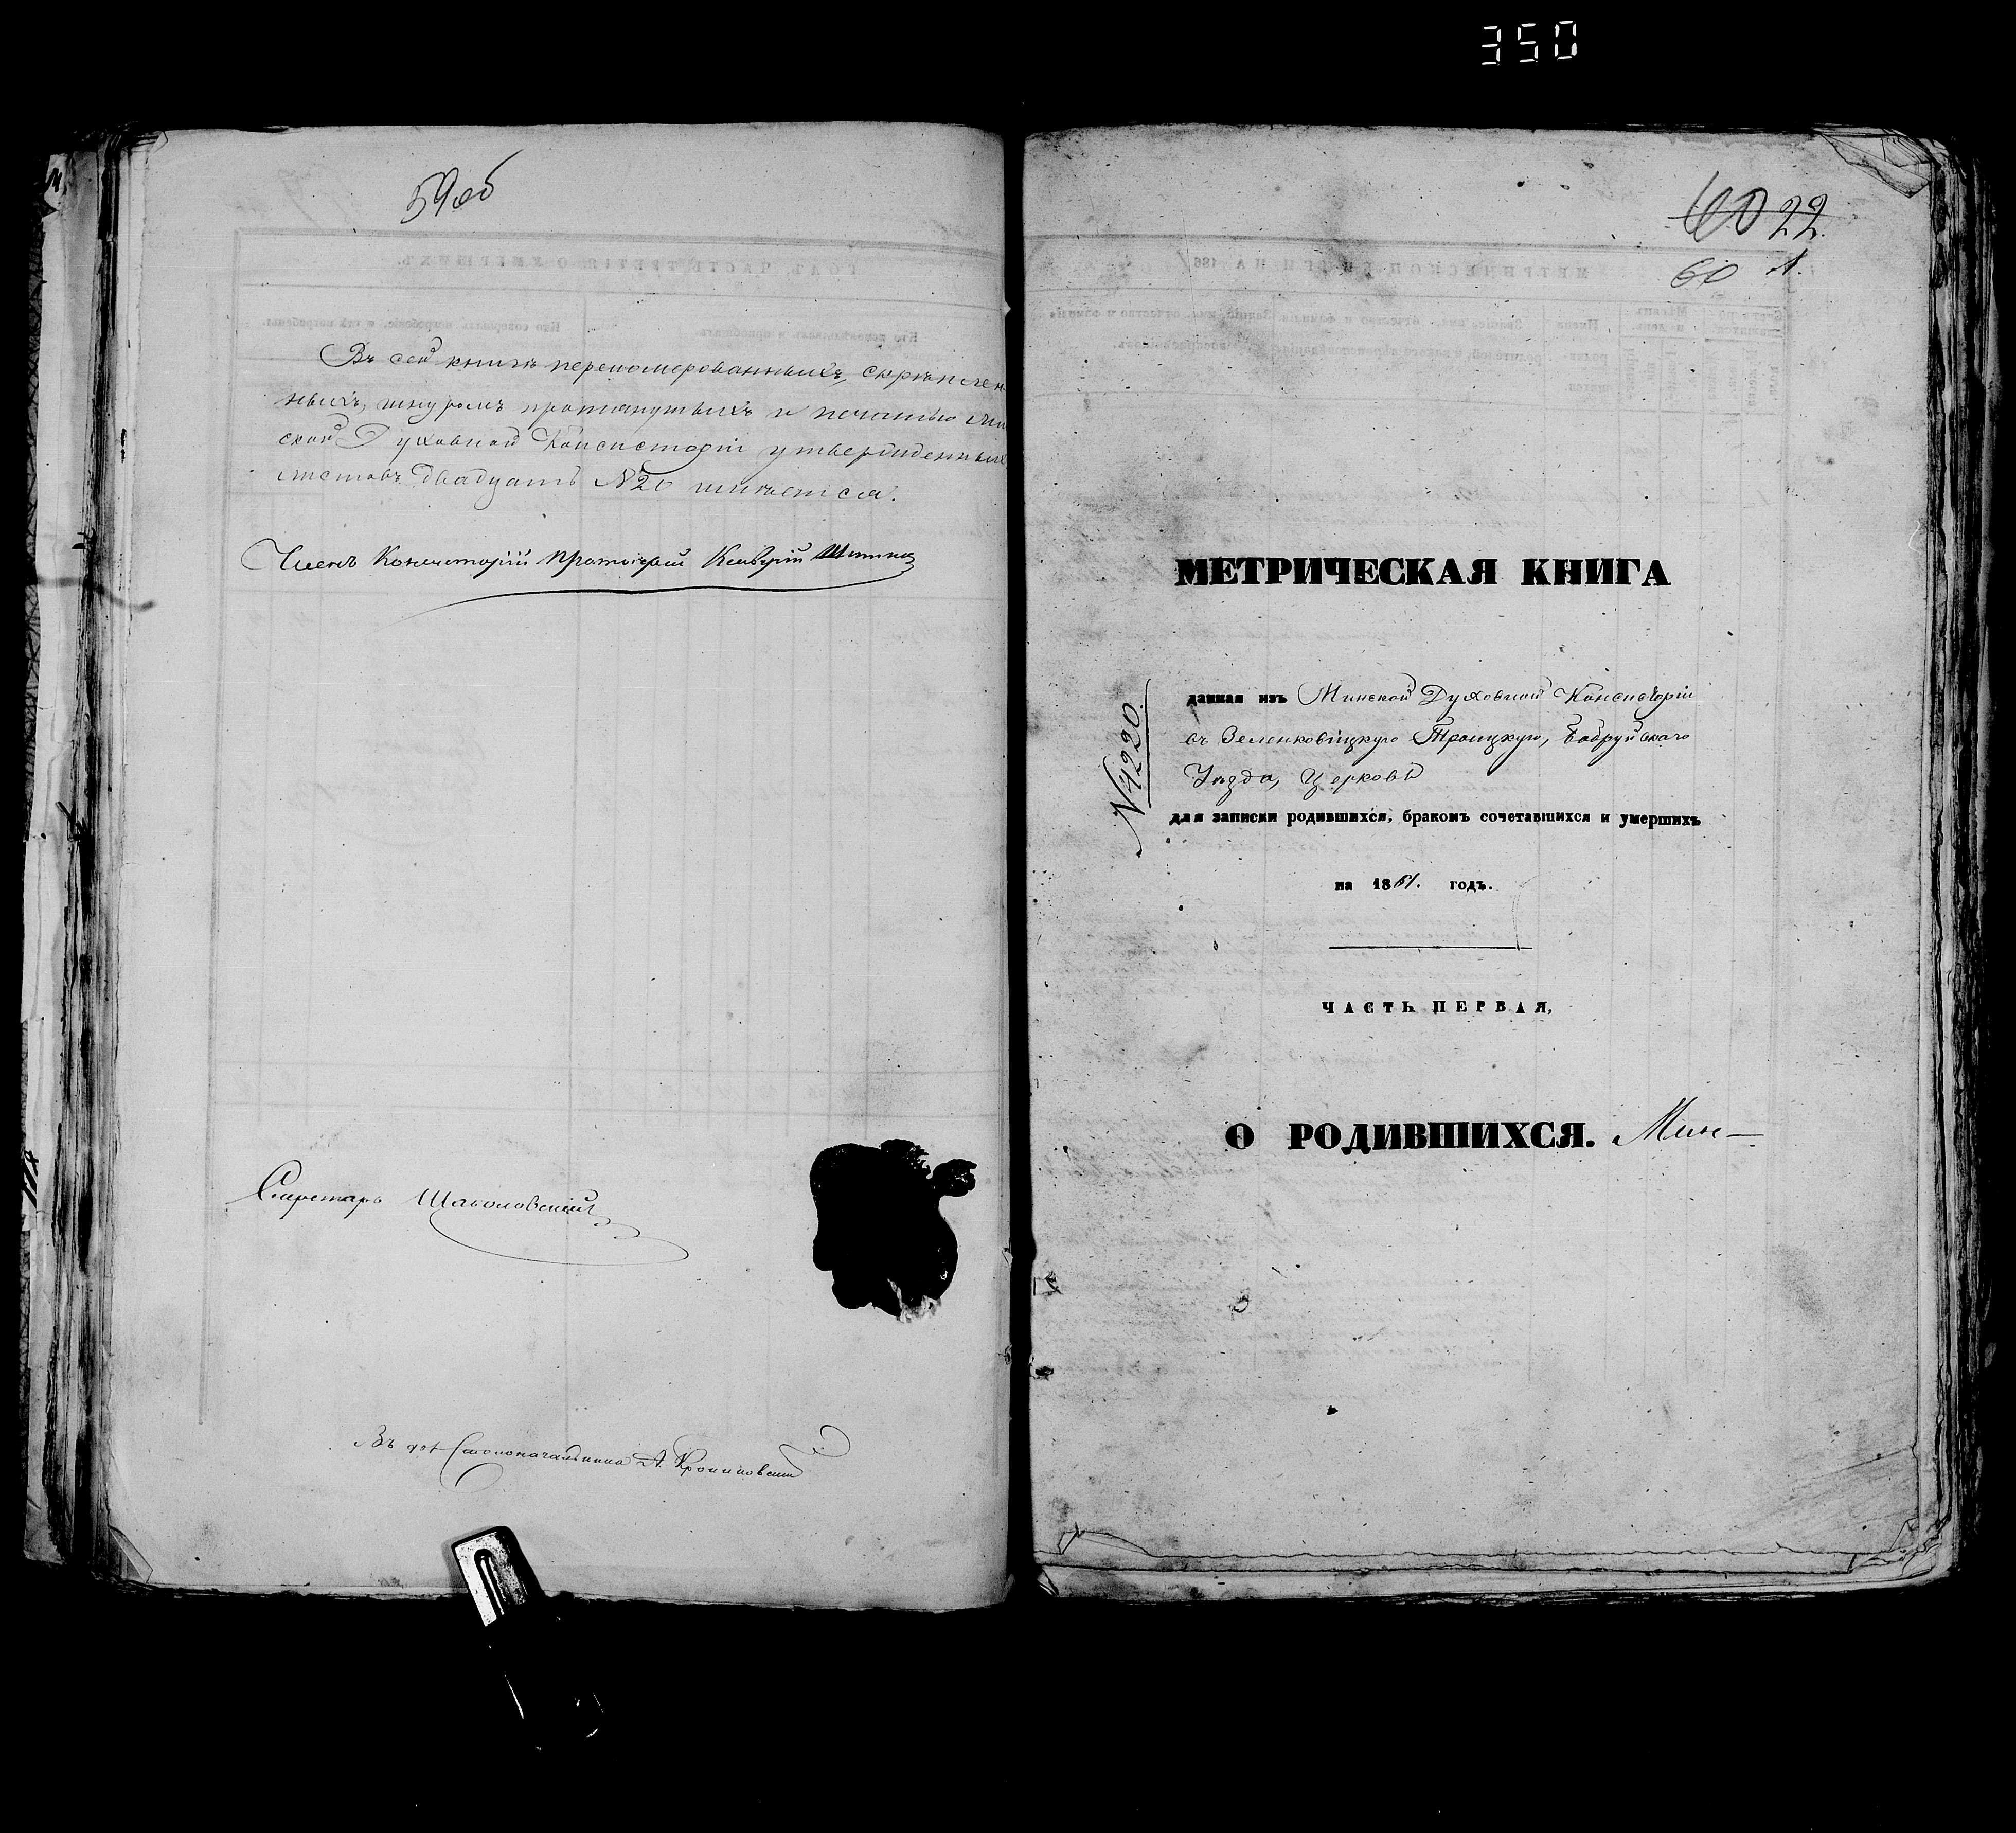 350
59об
Въ сей книгѣ перепомерованныхъ, скрѣплен-
ныхъ, шнуромъ протянутыхъ и печатью Мин
ской Духовной Консисторіи утвержденныхъ
листовъ двадцать №20 имѣется.
Членъ Консисторіи Протоіерей
Секретарь
Въ дол Столоначальника А.
60 22.
60 1.
МЕТРИЧЕСКАЯ КНИГА
№4220.
данная изъ Минской Духовной Консисторіи
въ Зеленковицкую Троицкую, Бобруйскаго
Уѣзда, Церковь
для записки родившихся, бракомъ сочетавшихся и умершихъ
на 1861. годъ.
ЧАСТЬ ПЕРВАЯ,
О РОДИВШИХСЯ. Мин—